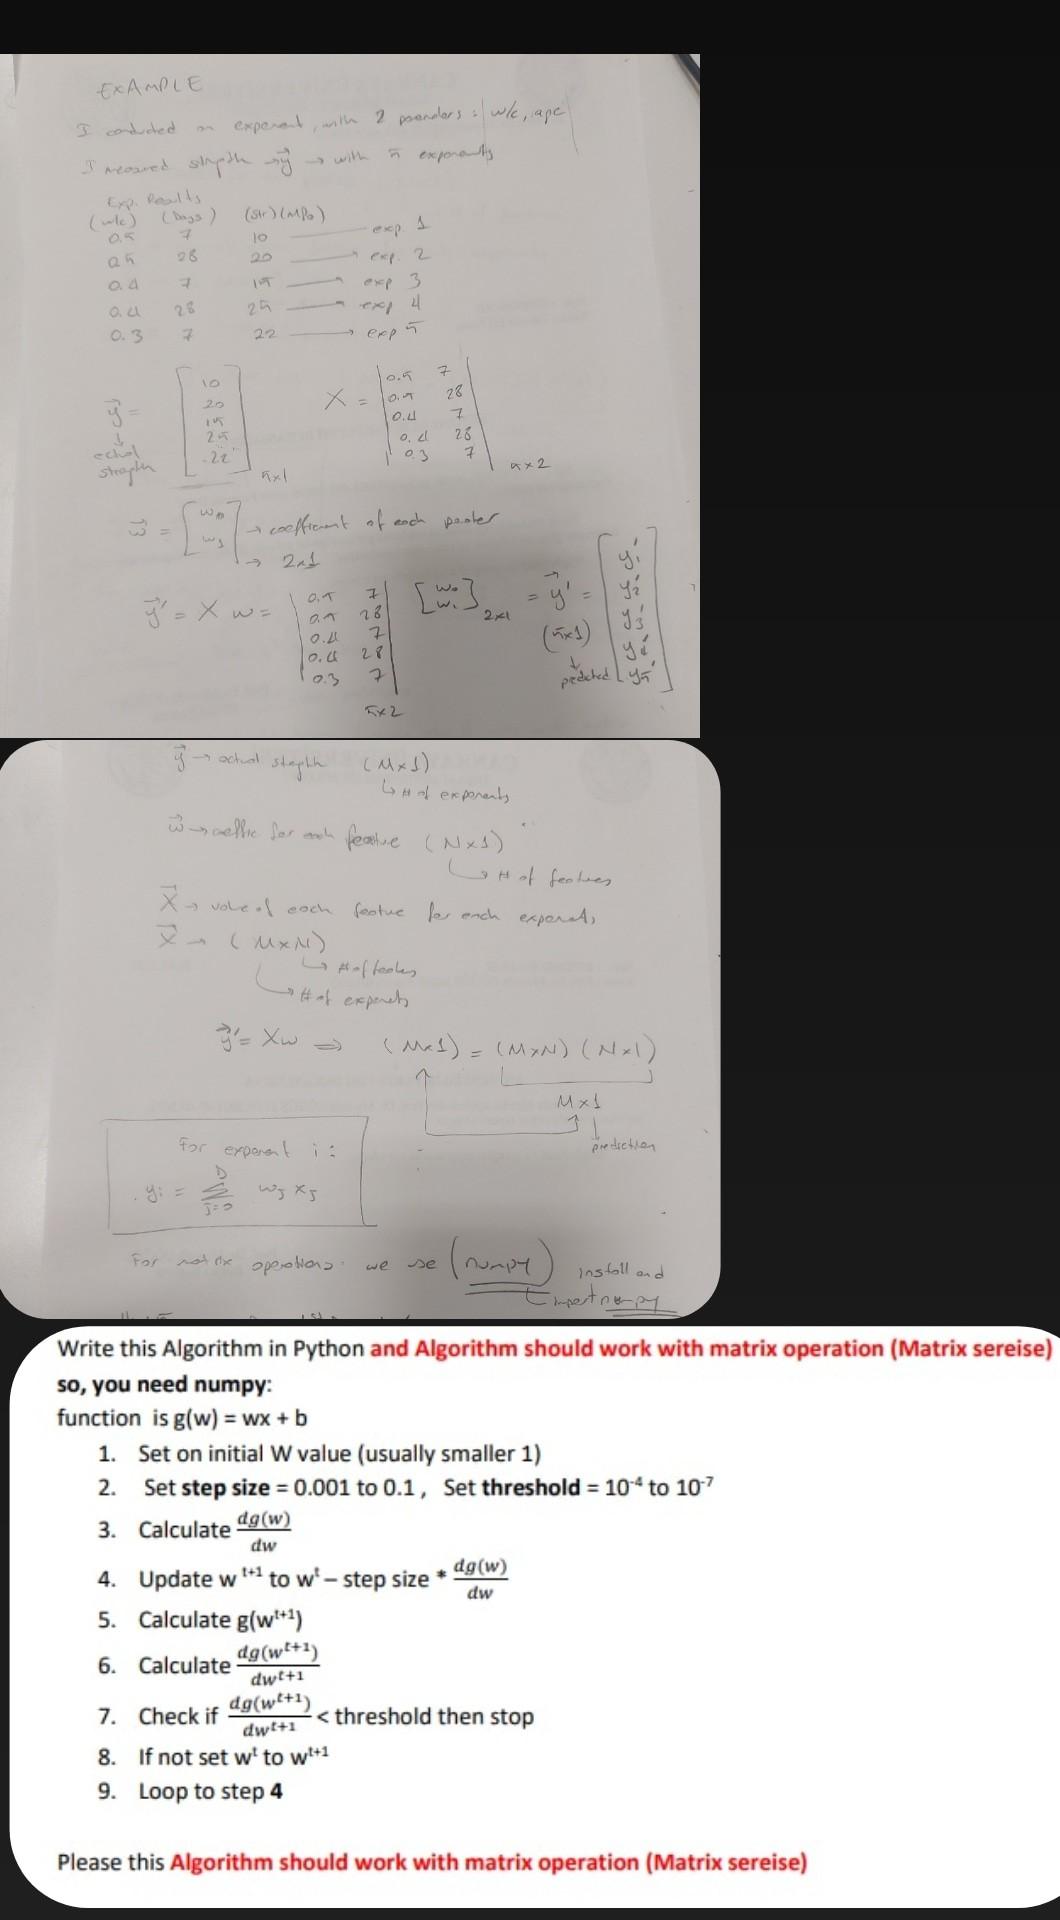 EXAMPLE
I conducted an experiment, with 2 : w/c, age
I measured → y → with 5 experiments
Exp. Results
(w/c) (Days) (str) (MPa)
0.5 7 10 exp. 1
0.5 28 20 → exp. 2
0.4 7 15 → exp 3
0.4 28 25 → exp 4
0.3 7 22 → exp 5
y = [10 20 15 25 22] 5x1
X = |0.5 7 0.5 28 0.4 7 0.4 28 0.3 7| 5x2
w = [w0 w1] → coefficient of each
→ 2x1
y' = X w = |0.5 7 0.5 28 0.4 7 0.4 28 0.3 7| 5x2 [w0 w1] 2x1 = y' = [y1' y2' y3' y4' y5']
(5x1)
y → actual (M x 1)
↳ # of
w → for each feature (N x 1)
↳ # of features
X → value of each feature for each
X → (M x N)
↳ # of
↳ # of
y' = Xw ⇒ (M x 1) = (M x N) (N x 1)
M x 1
prediction
For i :
yi = Σ wj xj
For matrix operations we use (numpy) install and
import numpy
Write this Algorithm in Python and Algorithm should work with matrix operation (Matrix sereise)
so, you need numpy:
function is g(w) = wx + b
1. Set on initial W value (usually smaller 1)
2. Set step size = 0.001 to 0.1 , Set threshold = 10⁻⁴ to 10⁻⁷
3. Calculate dg(w)/dw
4. Update w ᵗ⁺¹ to wᵗ – step size * dg(w)/dw
5. Calculate g(wᵗ⁺¹)
6. Calculate dg(wᵗ⁺¹)/dwᵗ⁺¹
7. Check if dg(wᵗ⁺¹)/dwᵗ⁺¹ < threshold then stop
8. If not set wᵗ to wᵗ⁺¹
9. Loop to step 4
Please this Algorithm should work with matrix operation (Matrix sereise)